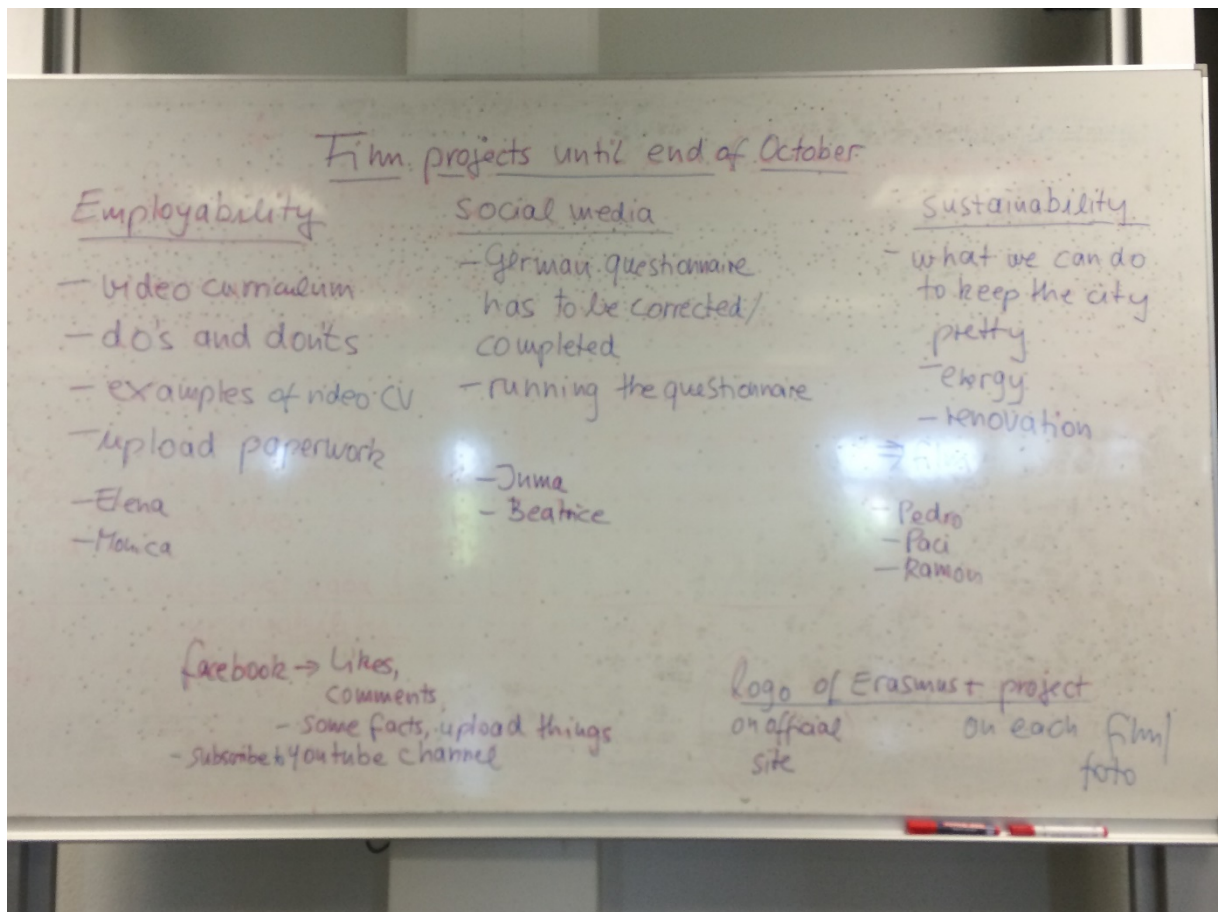 Film projects until end of October
Employability
- video curriculum
- do's and don'ts
- examples of video CV
- upload paperwork
- Elena
- Monica
social media
- German questionnaire
has to be corrected/
completed
- running the questionnaire
- Juma
- Beatrice
sustainability
- what we can do
to keep the city
pretty
- energy
- renovation
⇒
- Pedro
- Paci
- Ramón
facebook → Likes,
comments
- some facts, upload things
- subscribe to youtube channel
logo of Erasmus+ project
on official
site
on each film/
foto